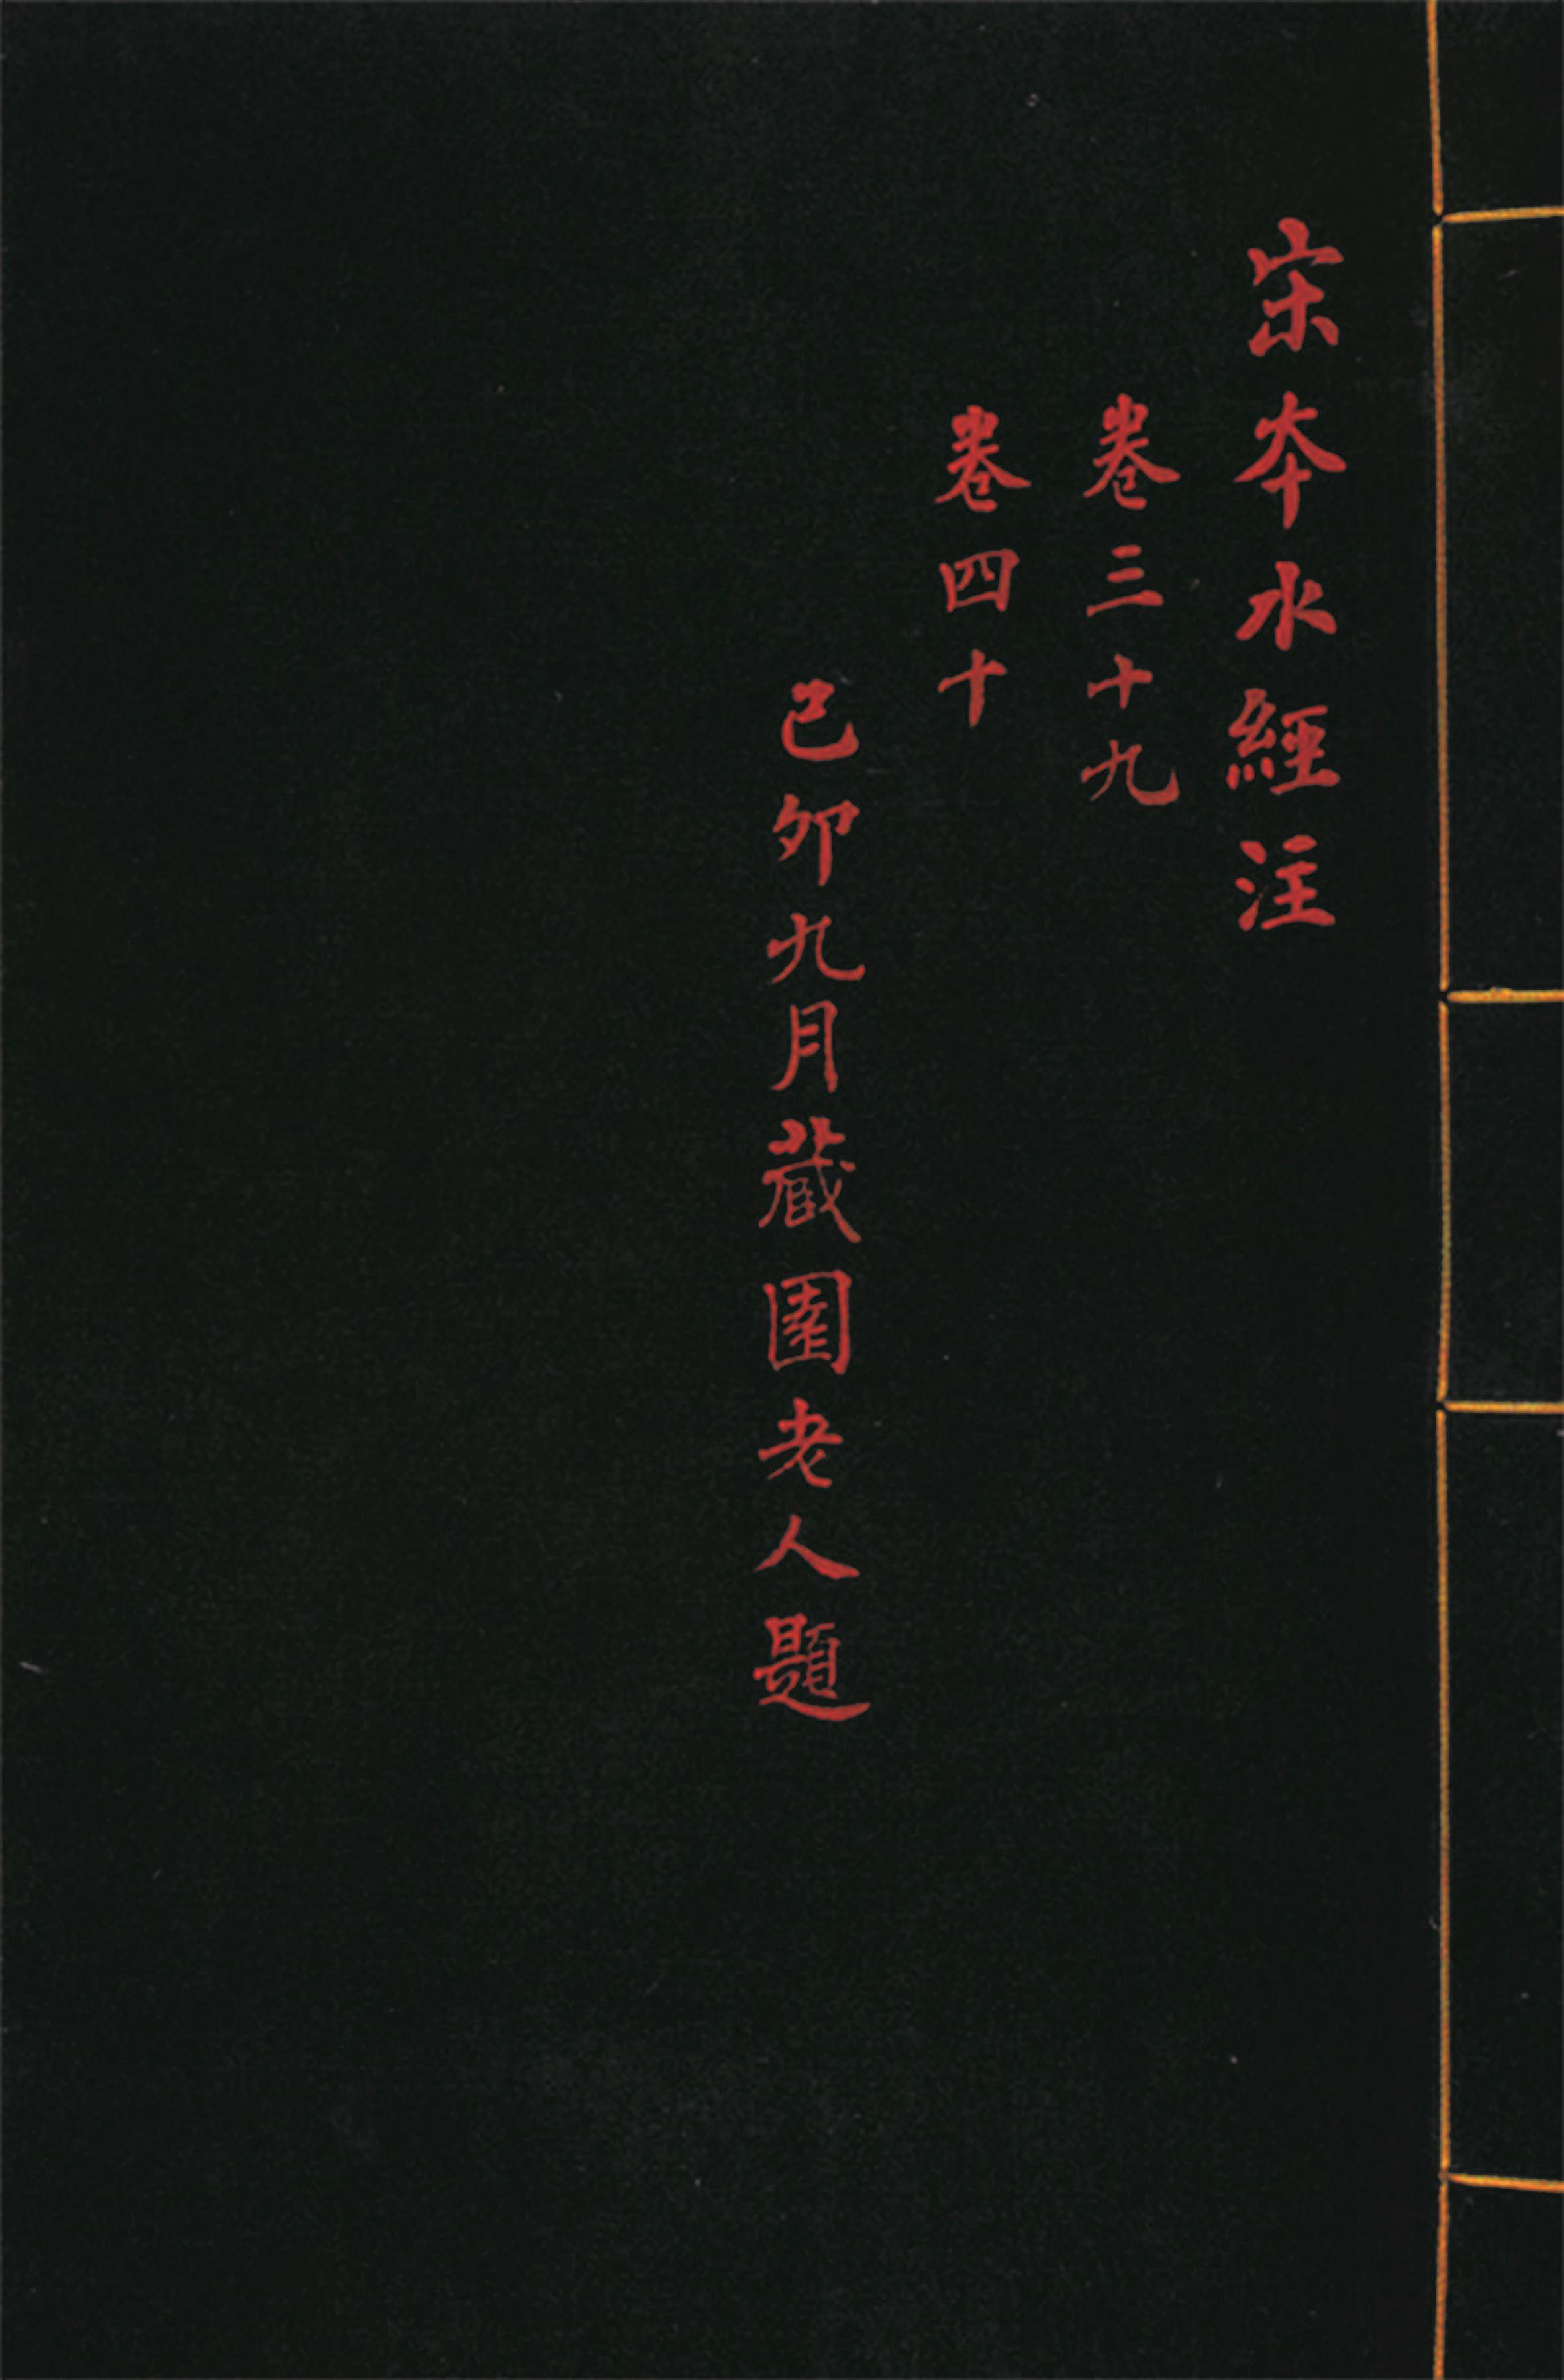 宋本水經注
卷三十九
卷四十
己卯九月藏園老人題